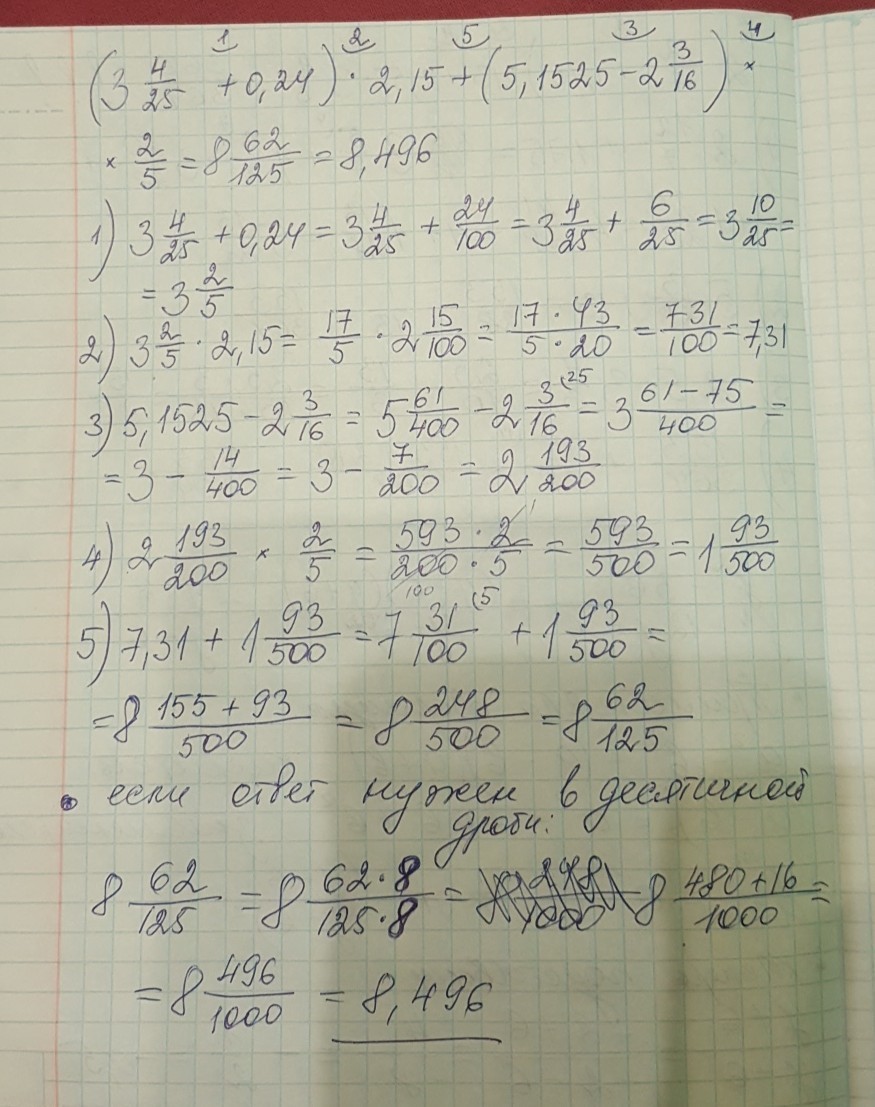 1 2 5 3 4
(3 4/25 + 0,24) · 2,15 + (5,1525 - 2 3/16) ×
× 2/5 = 8 62/125 = 8,496
1) 3 4/25 + 0,24 = 3 4/25 + 24/100 = 3 4/25 + 6/25 = 3 10/25 =
= 3 2/5
2) 3 2/5 · 2,15 = 17/5 · 2 15/100 = 17 · 43/5 · 20 = 731/100 = 7,31
3) 5,1525 - 2 3/16 = 5 61/400 - 2 3/16 (25 = 3 61 - 75/400 =
= 3 - 14/400 = 3 - 7/200 = 2 193/200
4) 2 193/200 × 2/5 = 593 · 2 1/200 · 5 100 = 593/500 = 1 93/500
5) 7,31 + 1 93/500 = 7 31/100 (5 + 1 93/500 =
= 8 155 + 93/500 = 8 248/500 = 8 62/125
• если ответ нужен в десятичной
дроби:
8 62/125 = 8 62 · 8/125 · 8 = 8 480 + 16/1000 =
= 8 496/1000 = 8,496